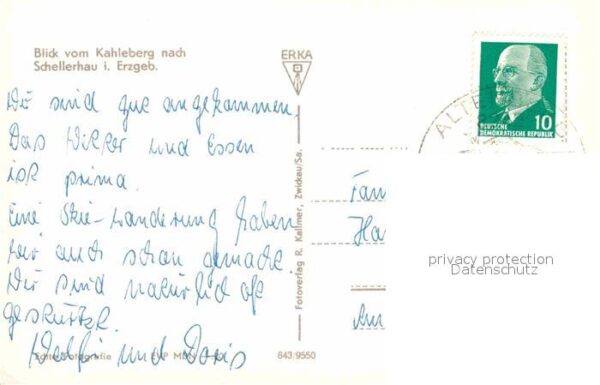 Blick vom Kahleberg nach
Schellerhau i. Erzgeb.
ERKA
Wir sind gut angekommen,
Das Wetter und Essen
ist prima.
Eine Skie-Wanderung haben
wir auch schon gemacht.
Wir sind natürlich oft
gestürzt.
und Doris
Echte Fotografie
EVP MDN
843/9550
Fotoverlag R. Kallmer, Zwickau/Sa.
ALTE
10
DEUTSCHE
DEMOKRATISCHE REPUBLIK
Fam
Ha
privacy protection
Datenschutz